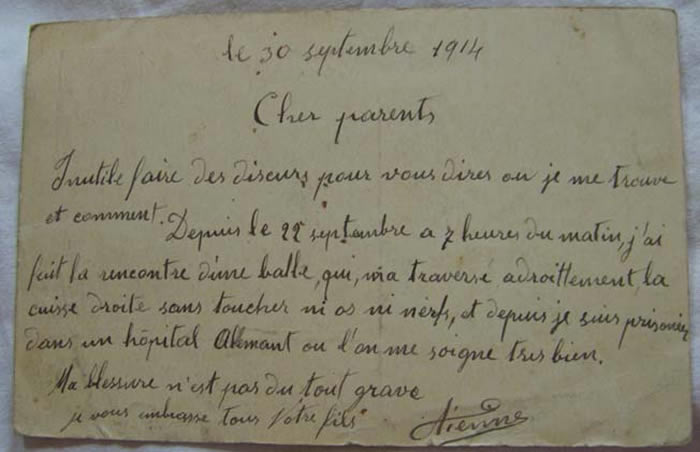 le 30 septembre 1914
Cher parents
Inutile faire des discurs pour vous dires ou je me trouve
et comment.
Depuis le 22 septembre a 7 heures du matin, j'ai
fait la rencontre d'une balle, qui, m'a traversé adroittement, la
cuisse droite sans toucher ni os ni nerfs, et depuis je suis prisonier
dans un hôpital Allemant ou l'on me soigne tres bien.
Ma blessure n'est pas du tout grave
je vous embrasse tous Votre fils